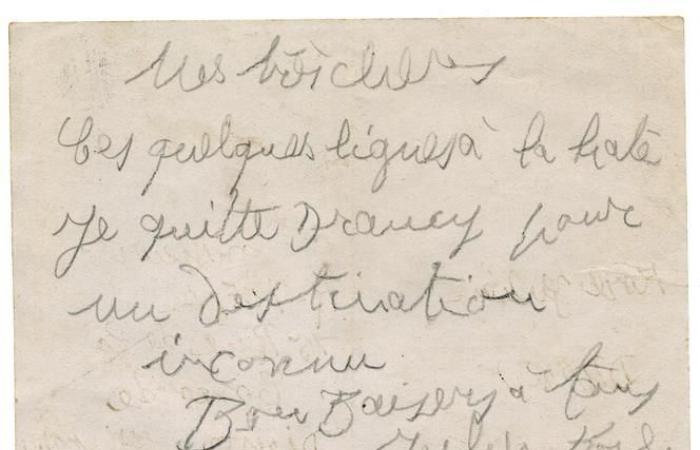 Mes très cheres
Ces quelques lignes à la hate
Je quitte Drancy pour
un destination
inconnu
Bon Baisers à tous